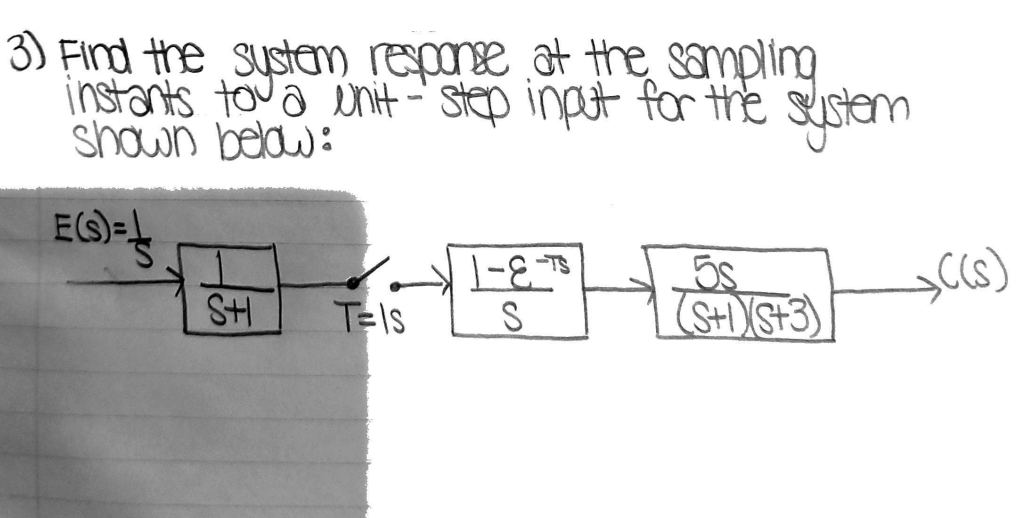 3) Find the system response at the sampling
instants to a unit-step input for the system
shown below:
E(s)=1/s
1/(s+1)
T=1s
1-ε^-Ts/s
5s/(s+1)(s+3)
C(s)